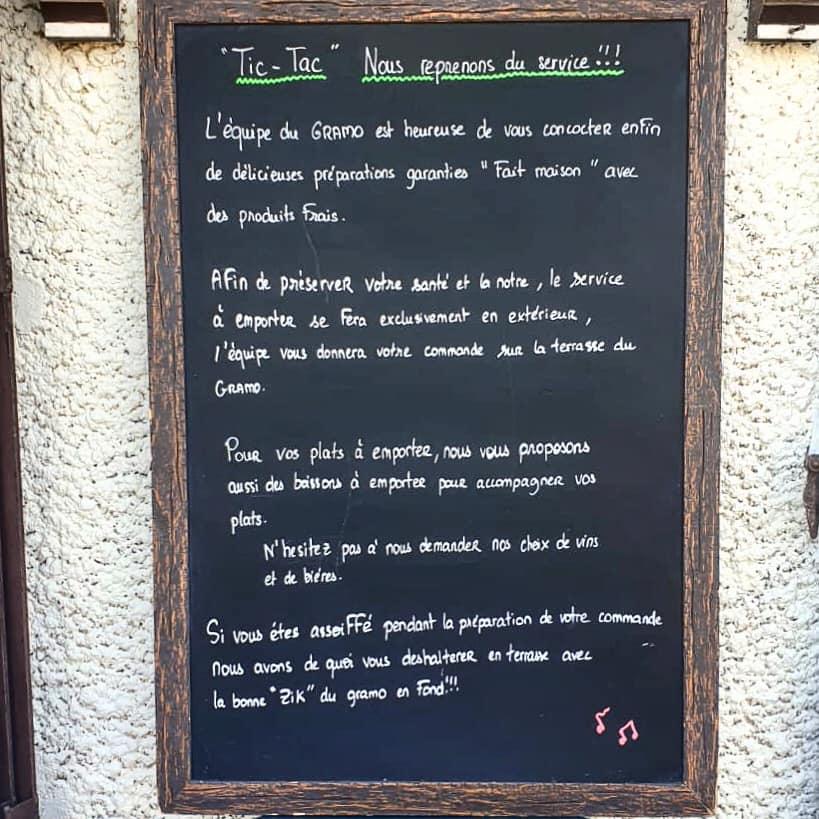 "Tic-Tac" Nous reprenons du service !!!
L'équipe du GRAMO est heureuse de vous concocter enfin
de délicieuses préparations garanties "Fait maison" avec
des produits frais.
Afin de préserver votre santé et la notre, le service
à emporter se fera exclusivement en extérieur,
l'équipe vous donnera votre commande sur la terrasse du
GRAMO.
Pour vos plats à emporter, nous vous proposons
aussi des boissons à emporter pour accompagner vos
plats.
N'hesitez pas a' nous demander nos choix de vins
et de biéres.
Si vous étes assoiffé pendant la préparation de votre commande
nous avons de quoi vous deshalterer en terrasse avec
la bonne "Zik" du gramo en fond!!!